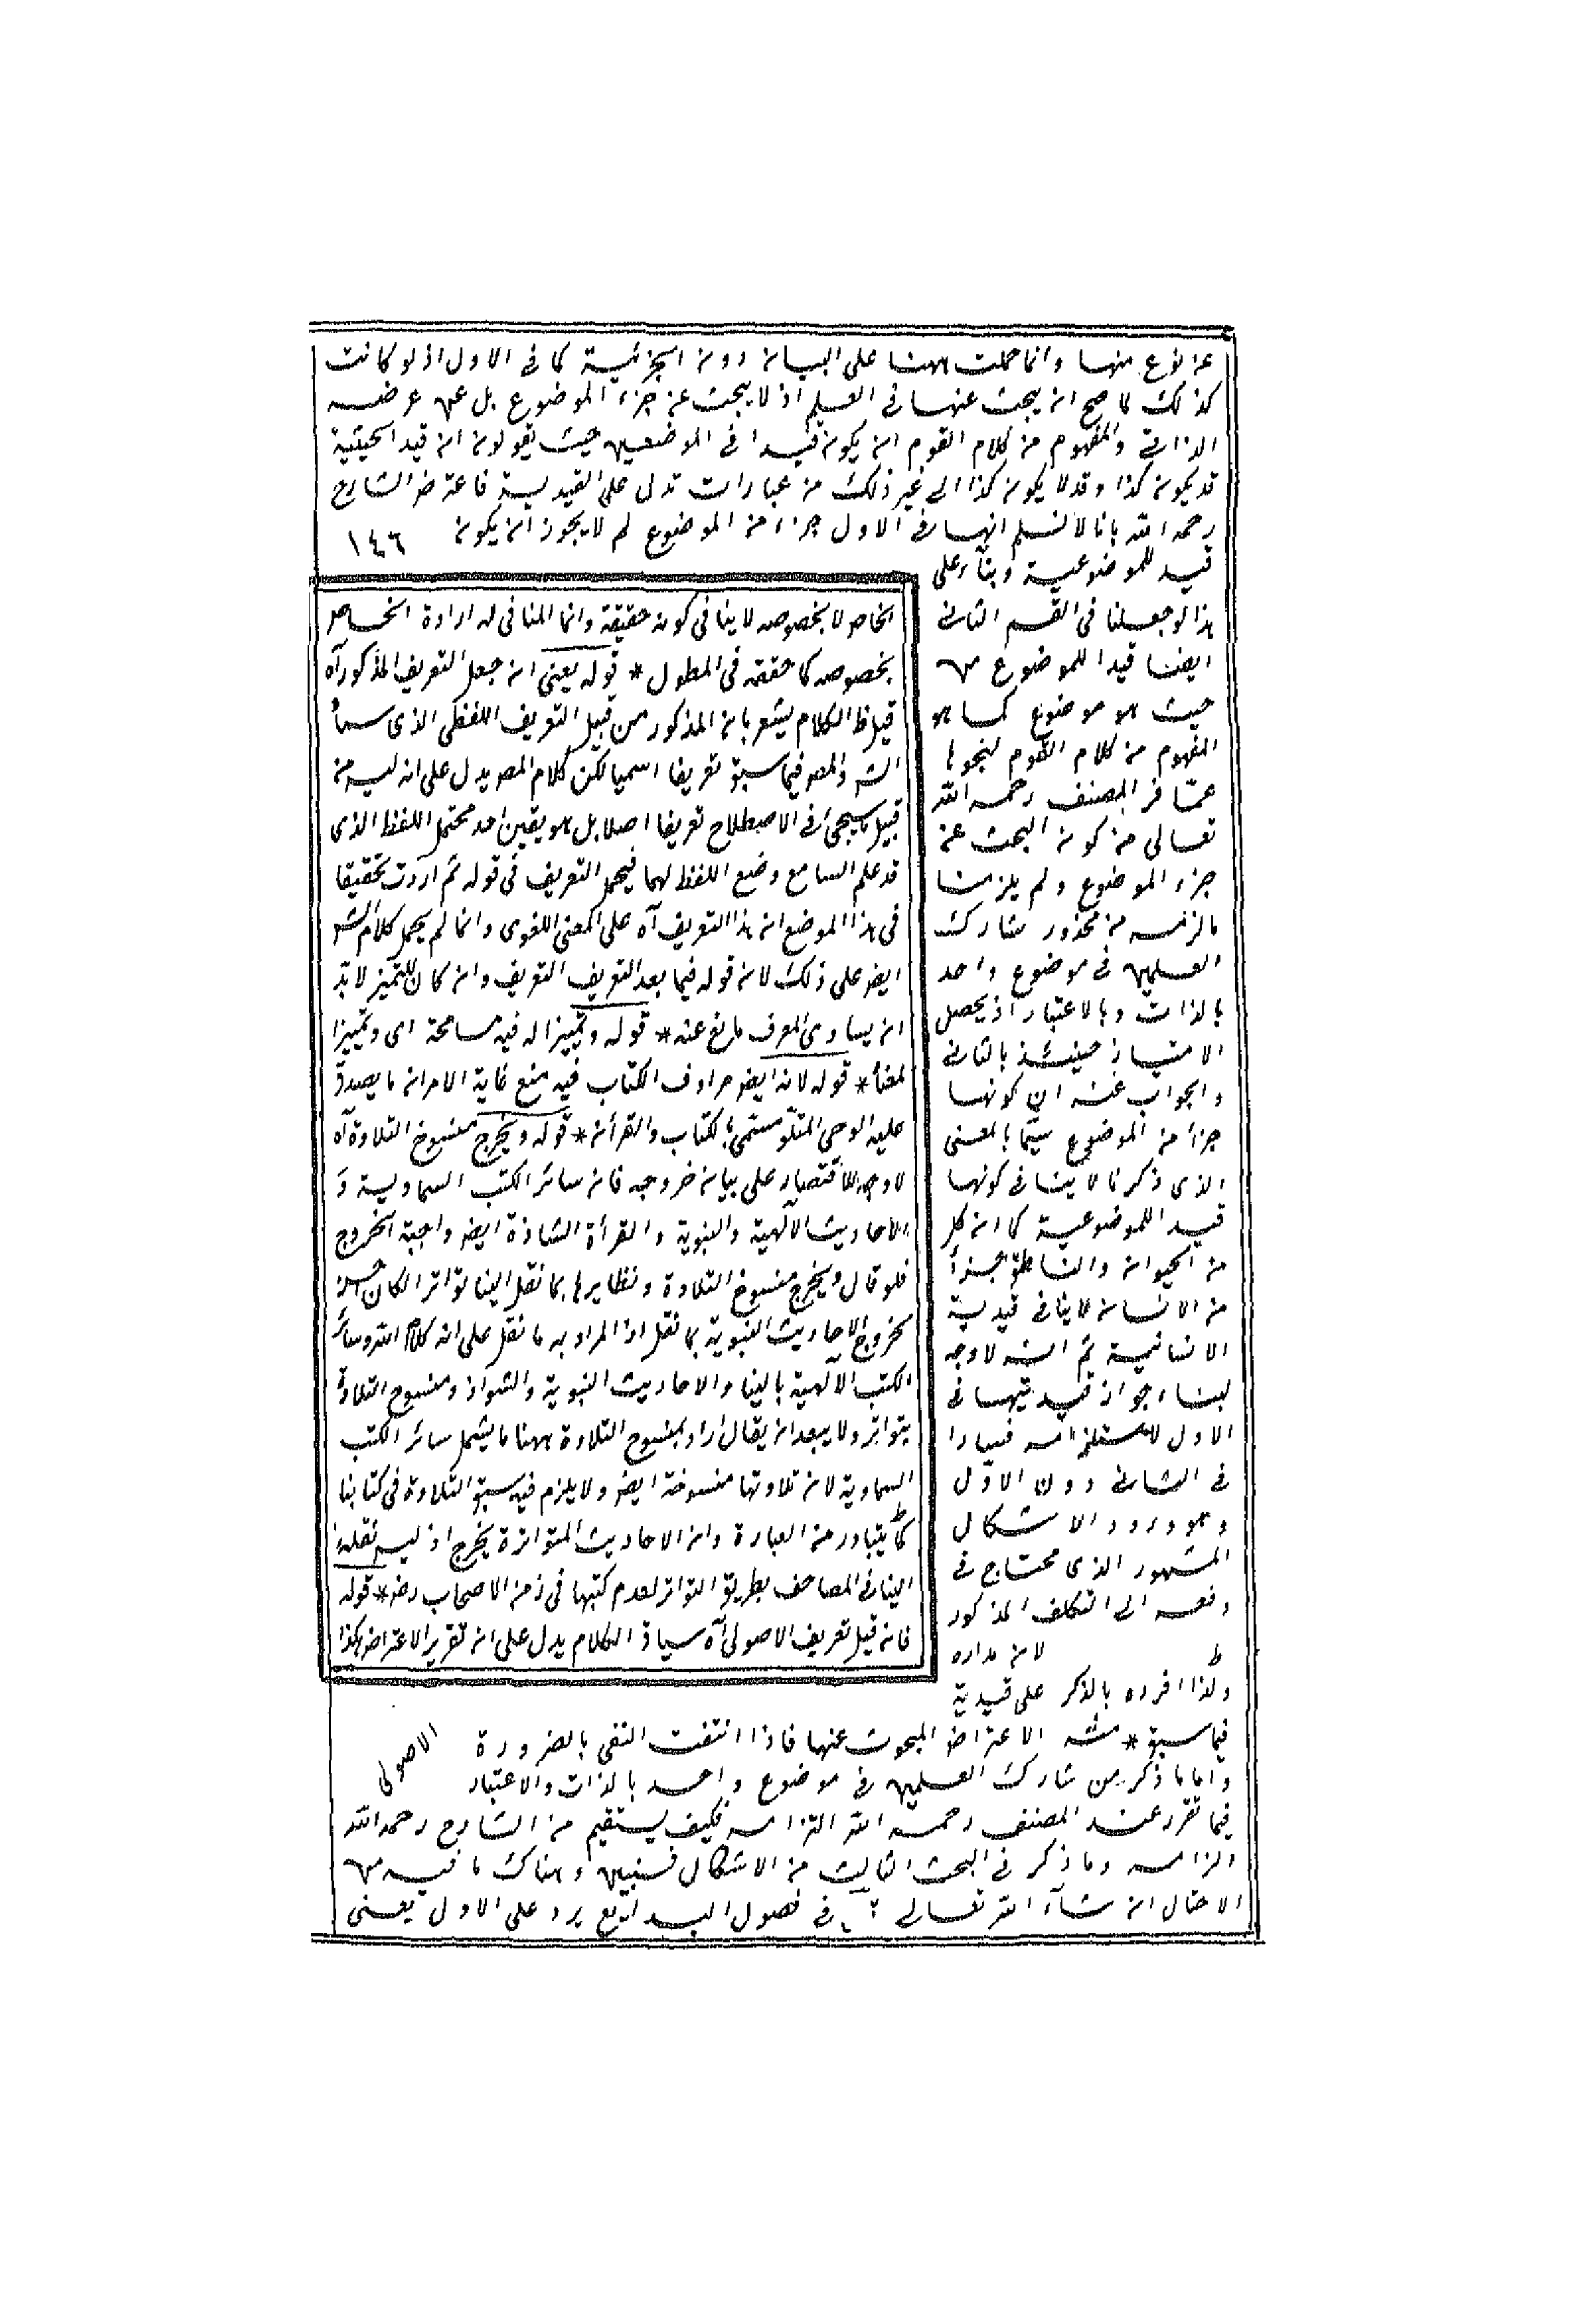 عن نوع منها وانما حملت ههنا على البيان دون الجزئية كما فى الاول اذ لو كانت
كذلك لما صح ان يبحث عنها فى العلم اذ لا يبحث عن جزء الموضوع بل عن عرضه
الذاتى والمفهوم من كلام القوم ان يكون قيدا فى الموضعين حيث يقولون ان قيد الحيثية
قد يكون كذا وقد لا يكون كذا الى غير ذلك من عبارات تدل على القيدية فاعترض الشارح
رحمه الله بانا لا نسلم انها فى الاول جزء من الموضوع لم لا يجوز ان يكون
١٤٦
قيد للموضوعية وبناء على
هذا لو جعلنا فى القسم الثانى
ايضا قيدا للموضوع من
حيث هو موضوع كما هو
المفهوم من كلام القوم لنجونا
عما فر المصنف رحمه الله
تعالى من كون البحث عن
جزء الموضوع ولم يلزمنا
ما لزمه من محذور تشارك
العلمين فى موضوع واحد
بالذات وبالاعتبار اذ يحصل
الامتياز حينئذ بالثانى
والجواب عنه ان كونها
جزأ من الموضوع سيما بالمعنى
الذى ذكرنا لا ينافى كونها
قيد اللموضوعية كما ان كل
من الحيوان والناطق جزأ
من الانسان لا ينافى قيدية
الانسانية ثم انه لا وجه
لبناء جواز قيديتها فى
الاول لاستلزامه فسادا
فى الثانى دون الاول
وهو ورود الاشكال
المشهور الذى محتاج فى
دفعه الى التكلف المذكور
لان مداره
ولذا افرده بالذكر على قيدية
فيما سبق * منه الاعتراض المبحوث عنها فاذا انتفت النفى بالضرورة
واما ما ذكر من تشارك العلمين فى موضوع واحد بالذات والاعتبار
فيما تقرر عند المصنف رحمه الله التزامه فكيف يستقيم من الشارح رحمه الله
الزامه وما ذكر فى البحث الثالث من الاشكال فسنبين هناك ما فيه من
الاختال ان شاء الله تعالى فى فصول البدائع يرد على الاول يعنى
الخاص لا بخصوصه لا ينافى كونه حقيقة وانما المنافى له ارادة الخاص
بخصوصه كما حققه فى المطول * قوله يعنى ان جعل التعريف المذكور آه
قيل ظ الكلام يشعر بان المذكور من قبيل التعريف اللفظى الذى سماه
الشه والمص فيما سبق تعريفا اسميا لكن كلام المص يدل على انه ليس من
قبيل ما سيجئ فى الاصطلاح تعريفا اصلا بل هو يقين احد محتمل اللفظ الذى
قد علم السامع وضع اللفظ لهما فيحمل التعريف فى قوله ثم اردت تحقيقا
فى هذا الموضع ان هذا التعريف آه على المعنى اللغوى وانما لم يحمل كلام الشه
ايض على ذلك لان قوله فيما بعد التعريف التعريف وان كان للتميز لا بد
ان يساوى المعرف مانع عنه * قوله وتمييزا له فيه مسامحة اى وتمييزا
لمعناه * قوله لانه ايض مرادف الكتاب فيه منع غاية الامر ان ما يصدق
عليه الوحى المتلو مسمى بالكتاب والقرأن * قوله ويخرج منسوخ التلاوة آه
لا وجه للاقتصار على بيان خروجه فان سائر الكتب السماوية و
الاحاديث الالهية والنبوية والقرأة الشاذة ايض واجبة الخروج
فلو قال ويخرج منسوخ التلاوة ونظايرها بما نقل الينا تواترا لكان احسن
بخروج الاحاديث النبوية بما نقل اذ المراد به ما نقل على انه كلام الله وسائر
الكتب الالهية بالينا والاحاديث النبوية والشواذ ومنسوخ التلاوة
بتواتر ولا يبعد ان يقال اراد بمنسوخ التلاوة ههنا ما يشمل سائر الكتب
السماوية لان تلاوتها منسوخة ايض ولا يلزم فيه سبق التلاوة فى كتابنا
كما يتبادر من العبارة وان الاحاديث المتواترة يخرج اذ ليس نقله
الينا فى المصاحف بطريق التواتر لعدم كتبها فى زمن الاصحاب رض * قوله
فان قيل تعريف الاصولى آه سياق الكلام يدل على ان تقرير الاعتراض هكذا
الاصولى